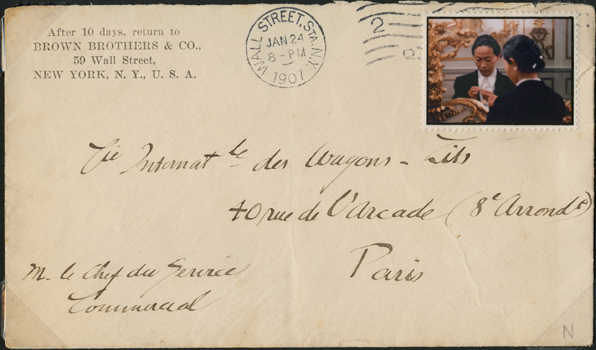 After 10 days, return to
BROWN BROTHERS & CO.,
59 Wall Street,
NEW YORK, N. Y., U. S. A.
WALL STREET, STA. N.Y.
JAN 24
8 - PM
1907
2
2
Cie Internat le des Wagons - Lits
40 rue de l'Arcade (8e Arrondt)
Paris
M. le Chef du Service
Commercial
N